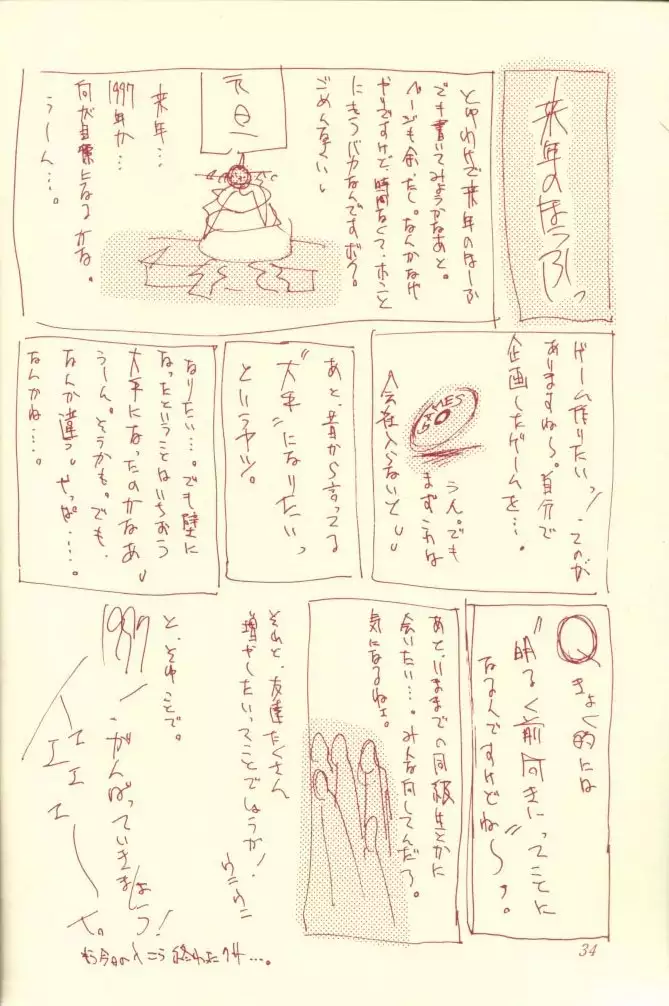 来年のほうふっ
とゆわけで来年のほーふ
でも書いてみようかなあと。
ページも余ったし。なんかなげ
やりですけど、時間なくて、ホント
にもうバカなんですボク。
ごめんなさいし
元旦
来年…
1997年か…
何が目標になるかな。
うーん…。
ゲーム作りたいっ!てのが
ありますね〜。自分で
企画したゲームを…。
GAMES
うん。でも
まずこれは
会社入らないとし
あと、昔から言ってる
"大手"になりたいっ
というヤツ。
なりたい…。でも壁に
なったということはいちおう
大手になったのかなあし
うーん。そうかも。でも、
なんか違うしやっぱ……。
なんかね……。
Qきょく的には
"明るく前向きに"ってことに
なるんですけどね〜っ。
あと、いままでの同級生とかに
会いたい…。みんな何してんだろ。
気になるねェ。
それと、友達たくさん
増やしたいってことでしょうか!
ウニウニ
と、そゆことで。
1997
がんばっていきまーしょっ!
エエエ
34